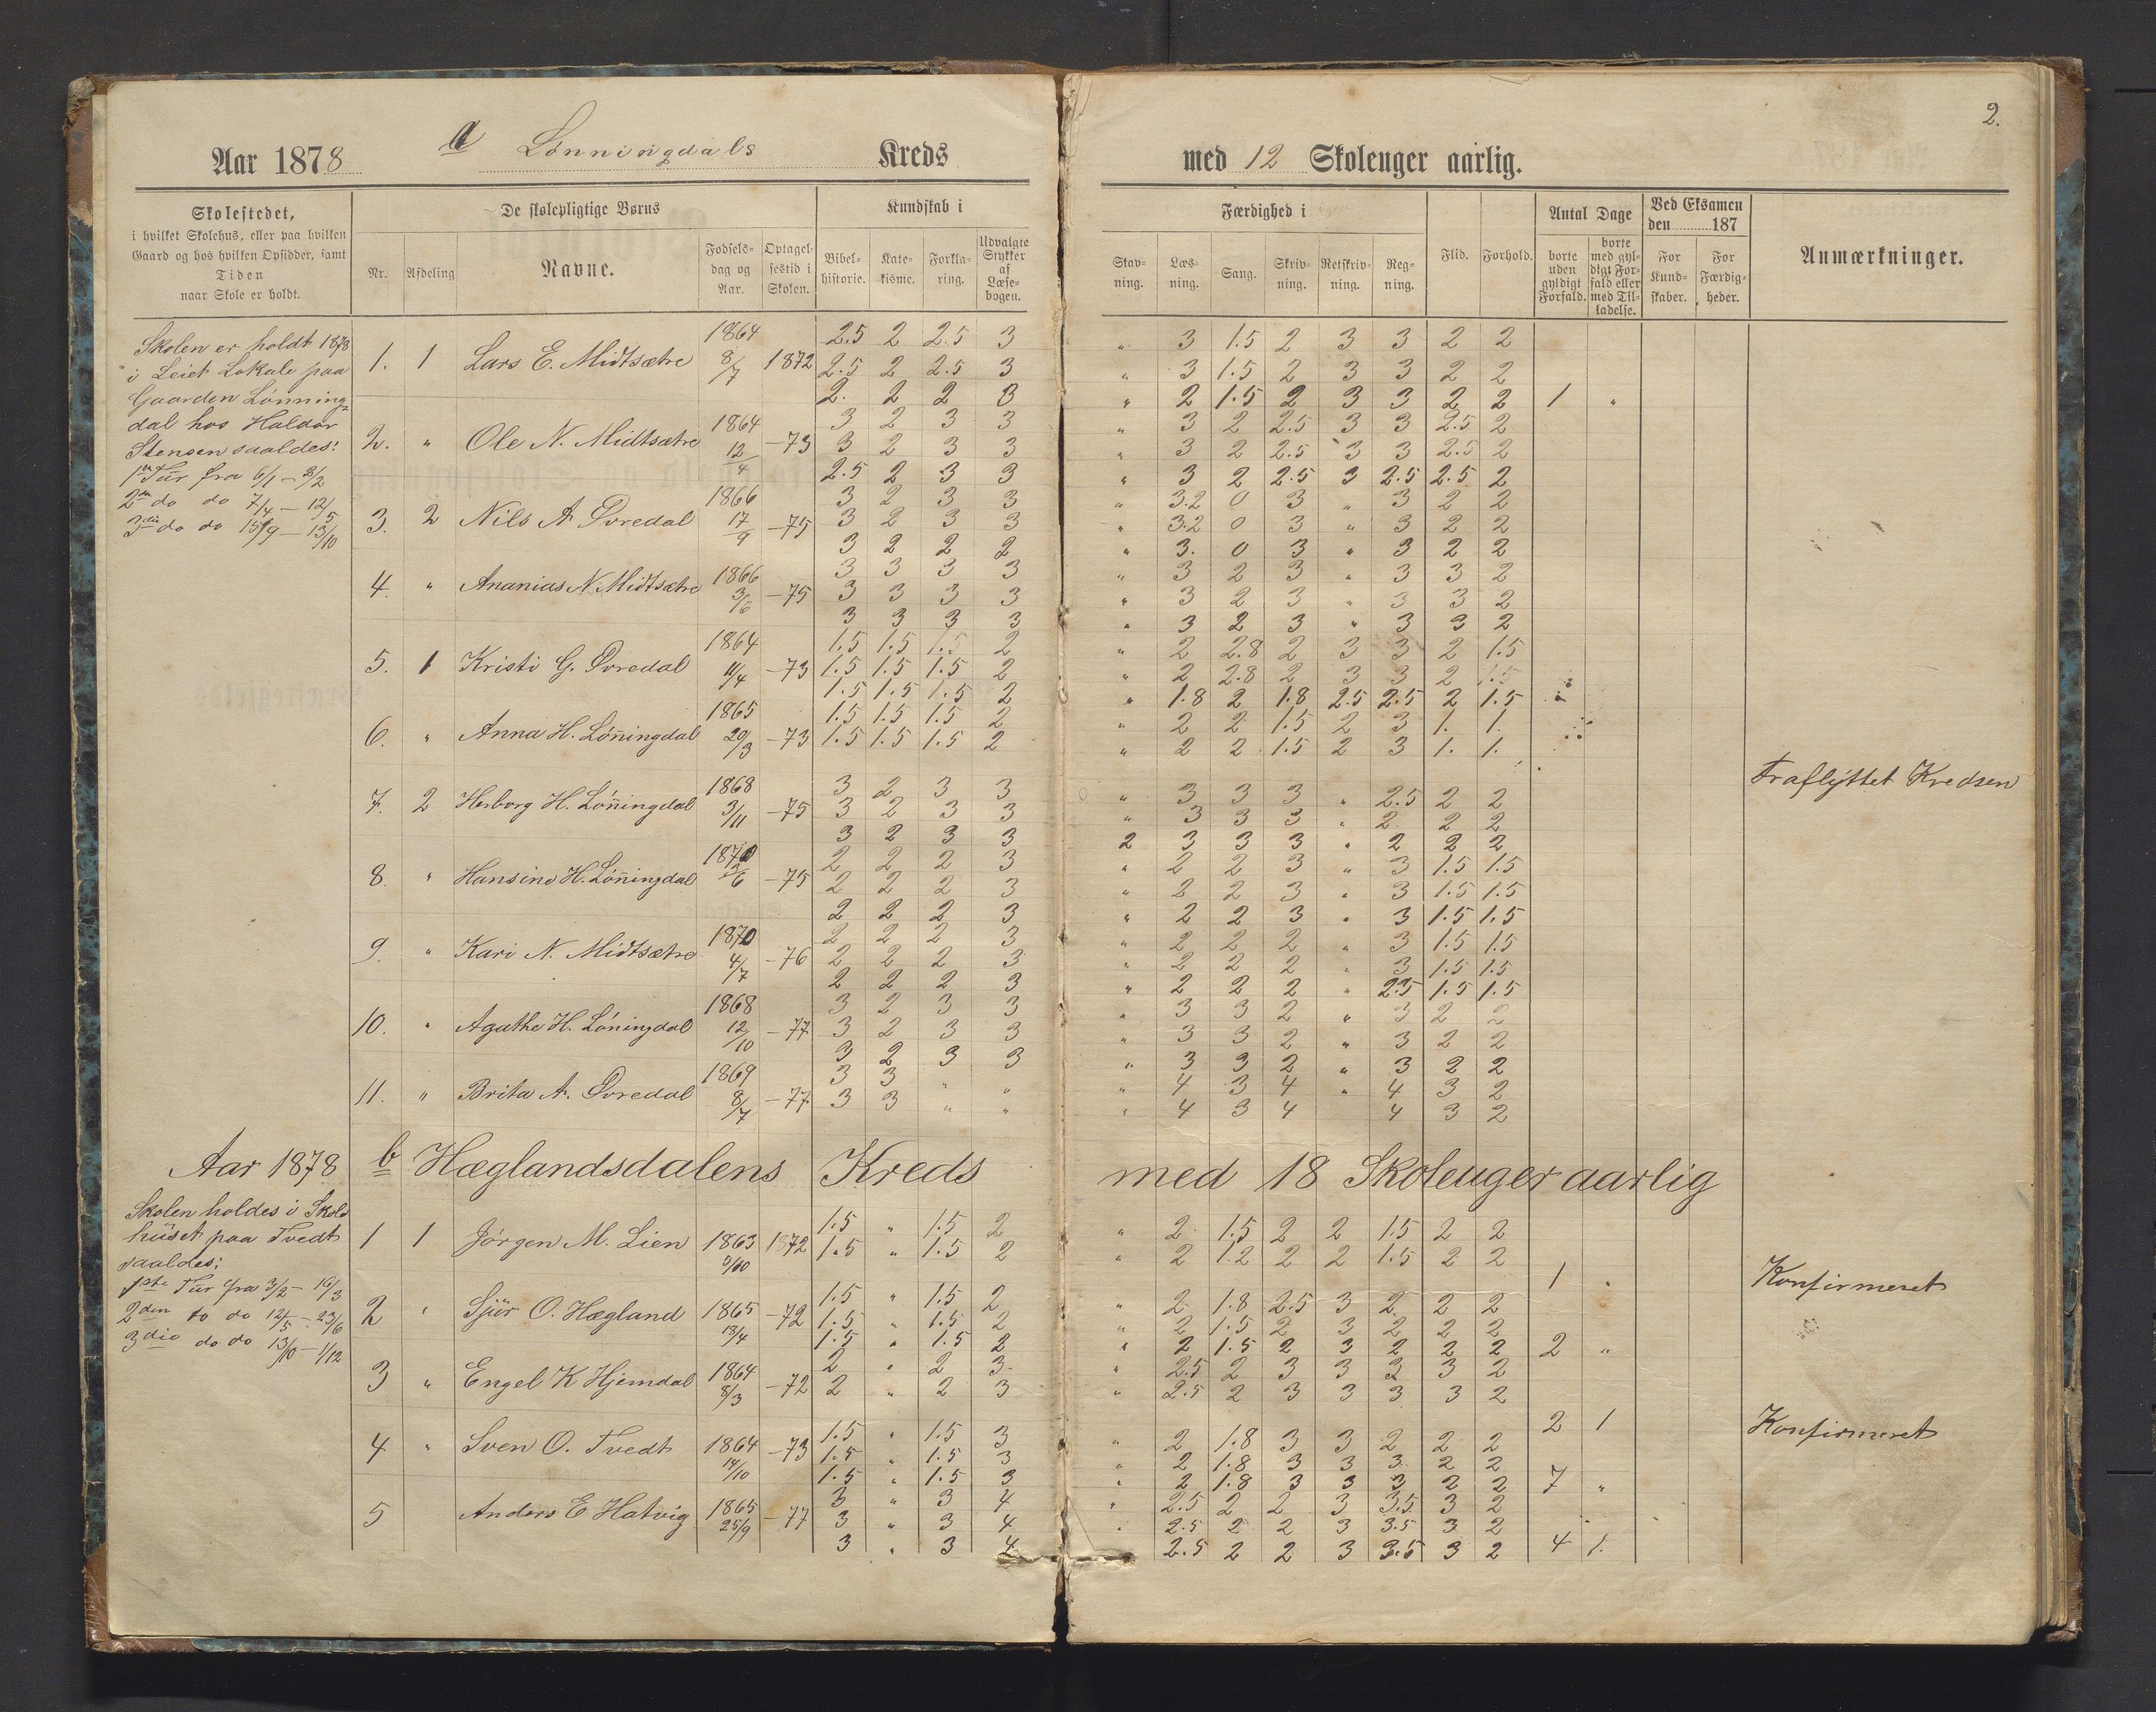 2.
Aar 1878 a Lønningdals Kreds med 12 Skoleuger aarlig.
Skolestedet,
i hvilket Skolehus, eller paa hvilken
Gaard og hos hvilken Opsidder, samt
Tiden
naar Skole er holdt.
De skolepligtige Børns
Nr. Afdeling Navne. Fødselsdag og Aar. Optagelsestid i Skolen.
Kundskab i
Bibelhistorie. Katekisme. Forklaring. Udvalgte Stykker af Læsebogen.
Færdighed i
Stavning. Læsning. Sang. Skrivning. Retskrivning. Regning.
Flid. Forhold.
Antal Dage
borte uden gyldigt Forfald. borte med gyldigt Forfald eller med Tilladelse.
Ved Eksamen den 187
For Kundskaber. For Færdigheder.
Anmærkninger.
Skolen er holdt 1878
i Leiet Lokale paa
Gaarden Lønning=
dal hos Haldor
Stensen saaledes:
1ste Tur fra 6/1 – 2/2
2den do do 7/4 – 12/5
3die do do 15/9 – 13/10
2.5 2 2.5 3 " 3 1.5 2 3 3 2 2
1. 1 Lars E. Midtsætre 1864 8/7 1872 2.5 2 2.5 3 " 3 1.5 2 3 3 2 2
2. 2 2 3 " 2 1.5 2 3 3 2 2 1 "
3 2 3 3 " 3 2 2.5 3 3 2.5 2
2. " Ole N. Midtsætre 1864 12/4 –73 3 2 3 3 " 3 2 2.5 3 3 2.5 2
2.5 2 3 3 " 3 2 2.5 3 2.5 2.5 2
3 2 3 3 " 3.2 0 3 " 3 2 2
3. 2 Nils A. Øvredal 1866 17/9 –75 3 2 3 3 " 3.2 0 3 " 3 2 2
3 2 2 2 " 3. 0 3 " 3 2 2
3 3 3 3 " 3 2 3 " 3 3 2
4. " Ananias N. Midtsætre 1866 3/6 –75 3 3 3 3 " 3 2 3 " 3 3 2
3 3 3 3 " 3 2 3 " 3 3 2
1.5 1.5 1.5 2 " 2 2.8 2 3 3 2 1.5
5. 1 Kristi G. Øvredal 1864 11/4 –73 1.5 1.5 1.5 2 " 2 2.8 2 3 3 2 1.5
1.5 1.5 1.5 2 " 1.8 2 1.8 2.5 2.5 2 1.5
1.5 1.5 1.5 2 " 2 2 1.5 2 3 1. 1.
6. " Anna H. Lønningdal 1865 29/3 –73 1.5 1.5 1.5 2 " 2 2 1.5 2 3 1. 1.
Fraflyttet Kredsen
3 2 3 3 " 3 3 3 " 2.5 2 2
7. 2 Herborg H. Lønningdal 1868 3/11 –75 3 2 3 3 " 3 3 3 " 2 2 2
3 2 3 3 2 3 3 3 " 2 2 2
2 2 2 3 " 2 2 3 " 3 1.5 1.5
8. " Hansine H. Lønningdal 1870 2/6 –75 2 2 2 3 " 2 2 3 " 3 1.5 1.5
2 2 2 3 " 2 2 3 " 3 1.5 1.5
2 2 2 3 " 2 2 2 " 3 1.5 1.5
9. " Kari N. Midtsætre 1870 4/7 –76 2 2 2 3 " 2 2 2 " 3 1.5 1.5
2 2 2 3 " 2 2 2 " 2.5 1.5 1.5
3 2 3 3 " 3 3 2 " 3 2 2
10. " Agathe H. Lønningdal 1868 12/10 –77 3 2 3 3 " 3 3 2 " 3 2 2
3 2 3 3 " 3 3 2 " 3 2 2
3 3 " " " 4 3 4 " 4 3 2
11. " Brita A. Øvredal 1869 8/7 –77 3 3 " " " 4 3 4 4 3 2
Aar 1878 b Hæglandsdalens Kreds med 18 Skoleuger aarlig
Skolen holdes i Skole
huset paa Tvedt
saaledes:
1ste Tur fra 3/2 – 16/3
2den do do 12/5 – 23/6
3die do do 13/10 – 1/12
1.5 " 1.5 2 " 2 1.5 2 2 1.5 2 2
1 1 Jørgen M. Lien 1863 5/10 1872 1.5 " 1.5 2 " 2 1.2 2 2 1.5 2 2
1 " Konfirmeret
1.5 " 1.5 2 " 2 1.8 2.5 3 2 2 2
2 " Sjur O. Hægland 1865 13/4 –72 1.5 " 1.5 2 " 2 1.5 2 3 2 2 2
1.5 " 1.5 2 " 2 1.5 2 3 2 2 2 2 "
2 " 2 3 " 2.5 2 3 3 3 3 2
3 " Engel K Hjemdal 1864 8/3 –72 2 " 2 3 " 2.5 2 3 3 3 3 2
2 1 Konfirmeret
1.5 " 1.5 3 " 2 1.8 3 3 2 2 2
4 " Sven O. Tvedt 1864 14/10 –73 1.5 " 1.5 3 " 2 1.8 3 3 3 2 2
1.5 " 1.5 3 " 2 1.8 3 3 3 2 2 7 "
3 " 3 4 " 2.5 2 2 3 3.5 3 2
5 Anders E Hatvig 1865 25/9 –77 3 " 3 4 " 2.5 2 2 3 3.5 3 2
3 " 3 4 2.5 2 2 3 3.5 3 2 4 1.